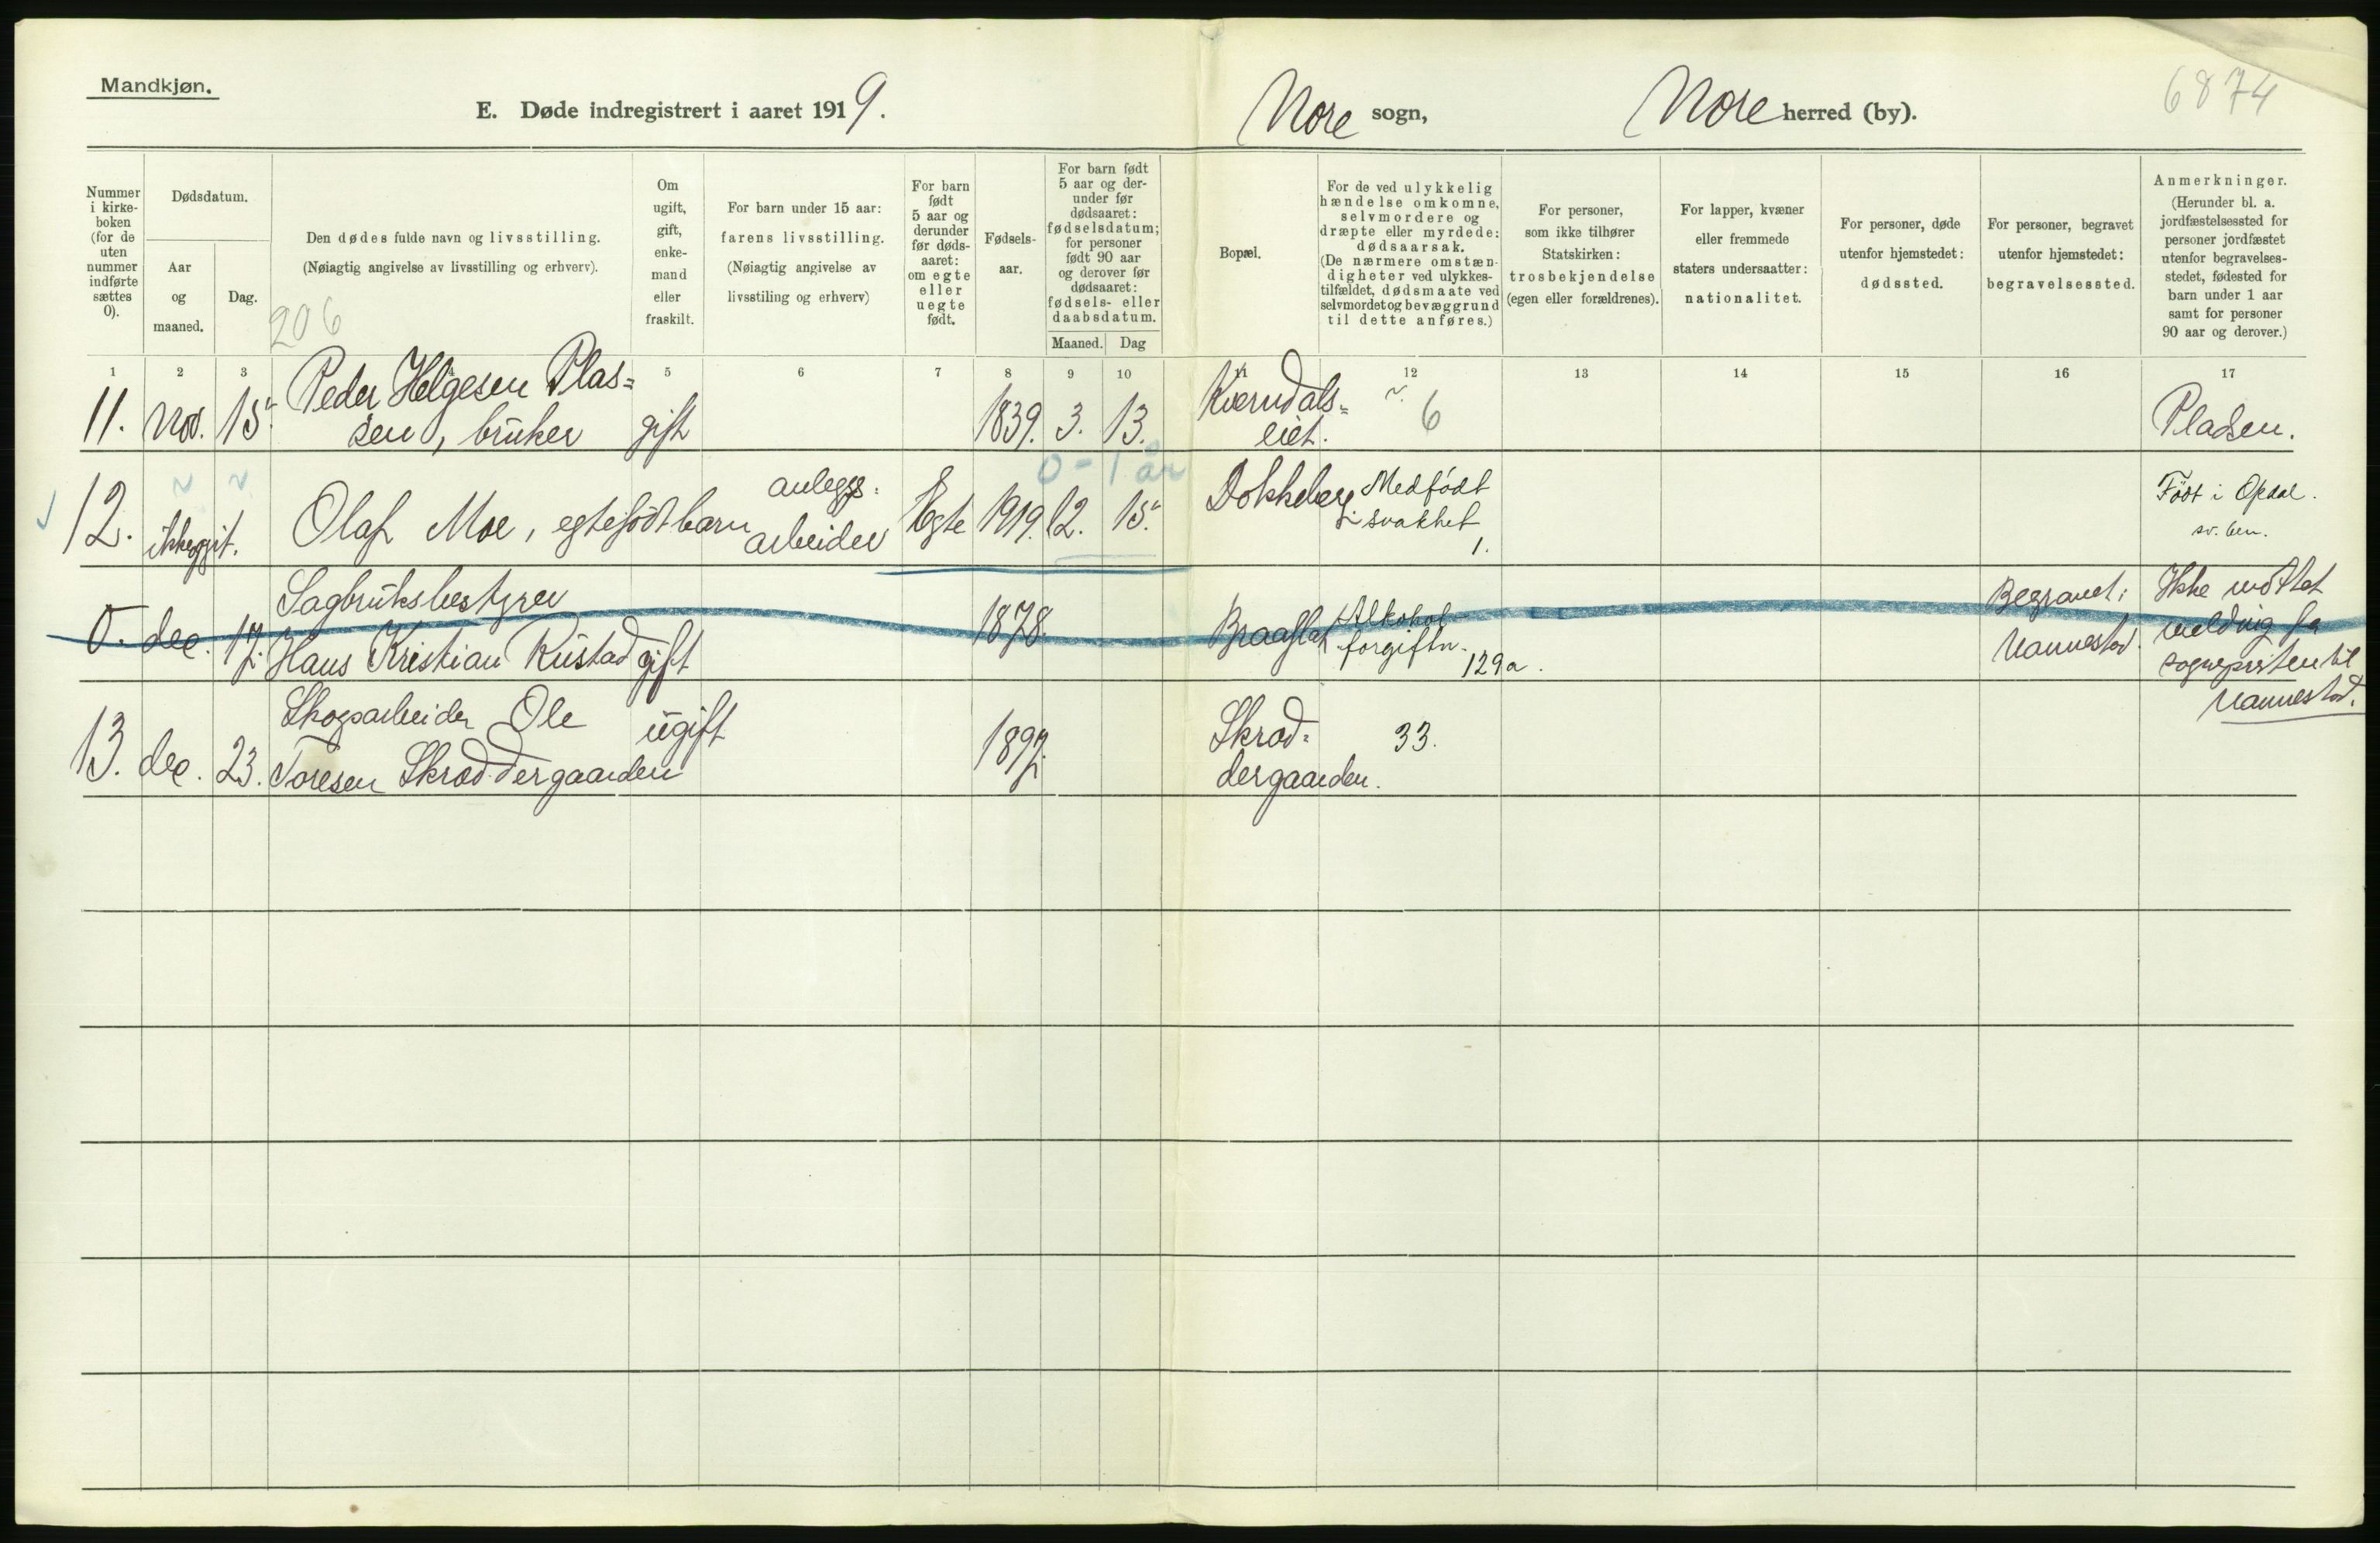 Mandkjøn.
E. Døde indregistrert i aaret 1919.
Nore sogn,
Nore herred (by).
6874
Nummer i kirke-boken (for de uten nummer indførte sættes 0).
Dødsdatum.
Aar og maaned.
Dag.
Den dødes fulde navn og livsstilling.
(Nøiagtig angivelse av livsstilling og erhverv).
206
Om ugift, gift, enke-mand eller fraskilt.
For barn under 15 aar:
farens livsstilling.
(Nøiagtig angivelse av
livsstiling og erhverv)
For barn født 5 aar og derunder før døds-aaret: om egte eller uegte født.
Fødsels-aar.
For barn født 5 aar og der-under før dødsaaret: fødselsdatum; for personer født 90 aar og derover før dødsaaret: fødsels- eller daabsdatum.
Maaned.
Dag
Bopæl.
For de ved ulykkelig hændelse omkomne, selvmordere og dræpte eller myrdede: dødsaarsak.
(De nærmere omstæn-digheter ved ulykkes-tilfældet, dødsmaate ved selvmordet og bevæggrund til dette anføres.)
For personer, som ikke tilhører Statskirken: trosbekjendelse (egen eller forældrenes).
For lapper, kvæner eller fremmede staters undersaatter: nationalitet.
For personer, døde utenfor hjemstedet: dødssted.
For personer, begravet utenfor hjemstedet: begravelsessted.
Anmerkninger.
(Herunder bl. a. jordfæstelsessted for personer jordfæstet utenfor begravelses-stedet, fødested for barn under 1 aar samt for personer 90 aar og derover.)
1 2 3 4 5 6 7 8 9 10 11 12 13 14 15 16 17
11. Nov. 15. Peder Helgesen Plas=
sen, bruker gift 1839. 3. 13. Kverndals=
eiet. 6 Pladsen.
0-1 år
12. ikke opgit. Olaf Moe, egtefødt barn anleggs=
arbeider Egte 1919. 12. 15. Dokkeberg Medfødt
svakhet
1.
Født i Opdal.
0. dec. 17. Sagbruksbestyrer
Hans Kristian Rustad gift 1878. Braaflat Alkohol-
forgiftn.
129a.
Begravet i
Nannestad.
Ikke mottat
melding fra
sogneprsten til
Nannestad.
13. dec. 23. Skogsarbeider Ole
Toresen Skroddergaarden ugift 1897. Skrod=
dergaarden. 33.